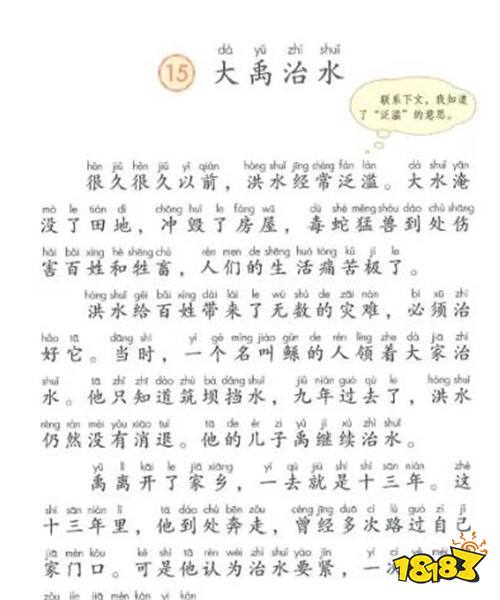 dà yǔ zhì shuǐ
15 大禹治水
联系下文，我知道
了“泛滥”的意思。
hěn jiǔ hěn jiǔ yǐ qián hóng shuǐ jīng cháng fàn làn dà shuǐ yān
很久很久以前，洪水经常泛滥。大水淹
mò le tián dì chōng huǐ le fáng wū dú shé měng shòu dào chù shāng
没了田地，冲毁了房屋，毒蛇猛兽到处伤
hài bǎi xìng hé shēng chù rén men de shēng huó tòng kǔ jí le
害百姓和牲畜，人们的生活痛苦极了。
hóng shuǐ gěi bǎi xìng dài lái le wú shù de zāi nàn bì xū zhì
洪水给百姓带来了无数的灾难，必须治
hǎo tā dāng shí yí gè míng jiào gǔn de rén lǐng zhe dà jiā zhì
好它。当时，一个名叫鲧的人领着大家治
shuǐ tā zhǐ zhī dào zhù bà dǎng shuǐ jiǔ nián guò qù le hóng shuǐ
水。他只知道筑坝挡水，九年过去了，洪水
réng rán méi yǒu xiāo tuì tā de ér zi yǔ jì xù zhì shuǐ
仍然没有消退。他的儿子禹继续治水。
yǔ lí kāi le jiā xiāng yí qù jiù shì shí sān nián zhè
禹离开了家乡，一去就是十三年。这
shí sān nián lǐ tā dào chù bēn zǒu céng jīng duō cì lù guò zì jǐ
十三年里，他到处奔走，曾经多次路过自己
jiā mén kǒu kě shì tā rèn wéi zhì shuǐ yào jǐn yí cì yě mé
家门口。可是他认为治水要紧，一次
zǒu jìn jiā mén kàn yì yǎn
18183